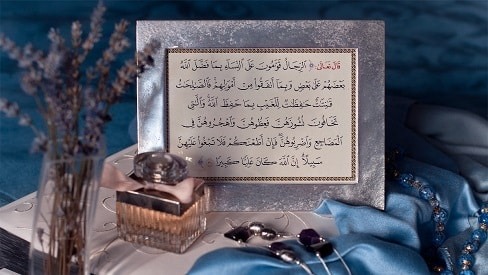 قال تعالى: ﴿ ٱلرِّجَالُ قَوَّٰمُونَ عَلَى ٱلنِّسَآءِ بِمَا فَضَّلَ ٱللَّهُ
بَعۡضَهُمۡ عَلَىٰ بَعۡضٖ وَبِمَآ أَنفَقُواْ مِنۡ أَمۡوَٰلِهِمۡۚ فَٱلصَّٰلِحَٰتُ
قَٰنِتَٰتٌ حَٰفِظَٰتٞ لِّلۡغَيۡبِ بِمَا حَفِظَ ٱللَّهُۚ وَٱلَّٰتِي
تَخَافُونَ نُشُوزَهُنَّ فَعِظُوهُنَّ وَٱهۡجُرُوهُنَّ فِي
ٱلۡمَضَاجِعِ وَٱضۡرِبُوهُنَّۖ فَإِنۡ أَطَعۡنَكُمۡ فَلَا تَبۡغُواْ عَلَيۡهِنَّ
سَبِيلًاۗ إِنَّ ٱللَّهَ كَانَ عَلِيّٗا كَبِيرٗا ﴾